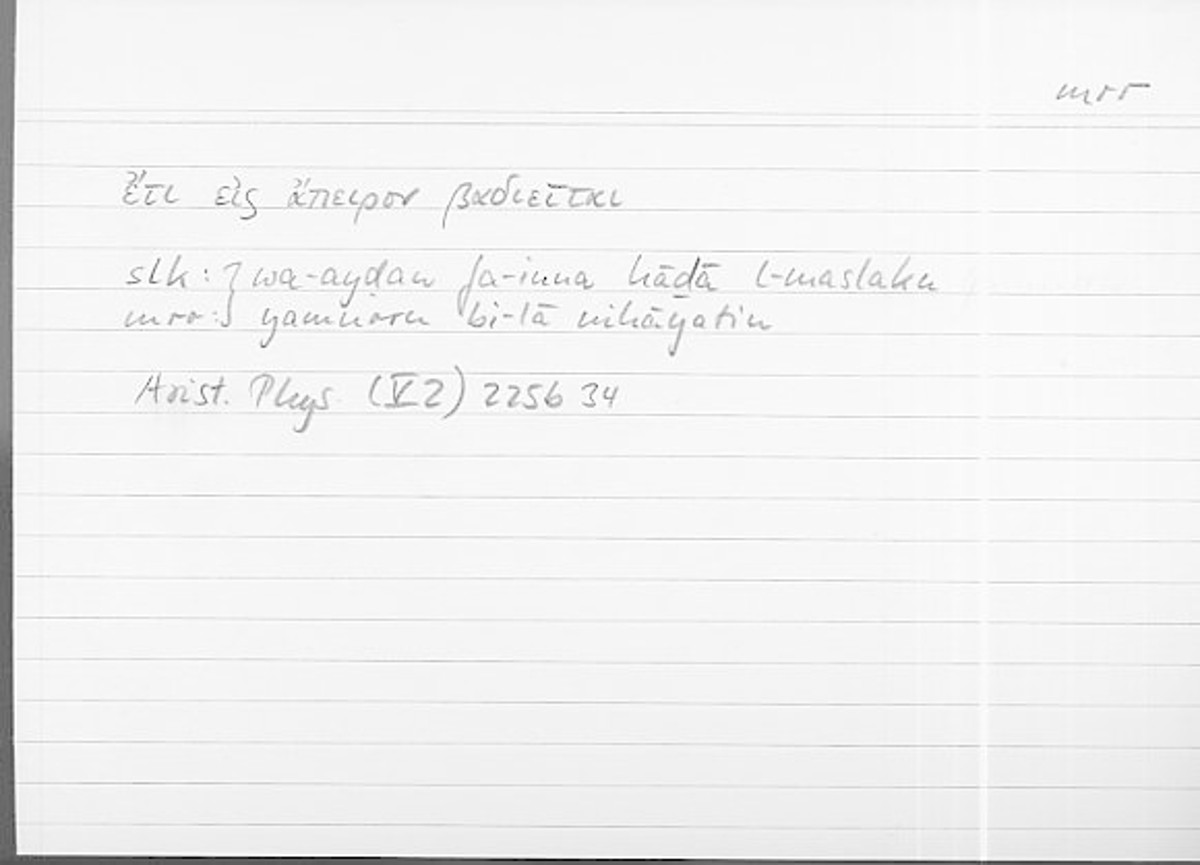 mrr
Ἔτι εἰς ἄπειρον βαδιεῖται
slk: } wa-ayḍan fa-inna hāḏā l-maslaku
mrr: } yamurru bi-lā nihāyatin
Arist. Phys (V2) 225b 34